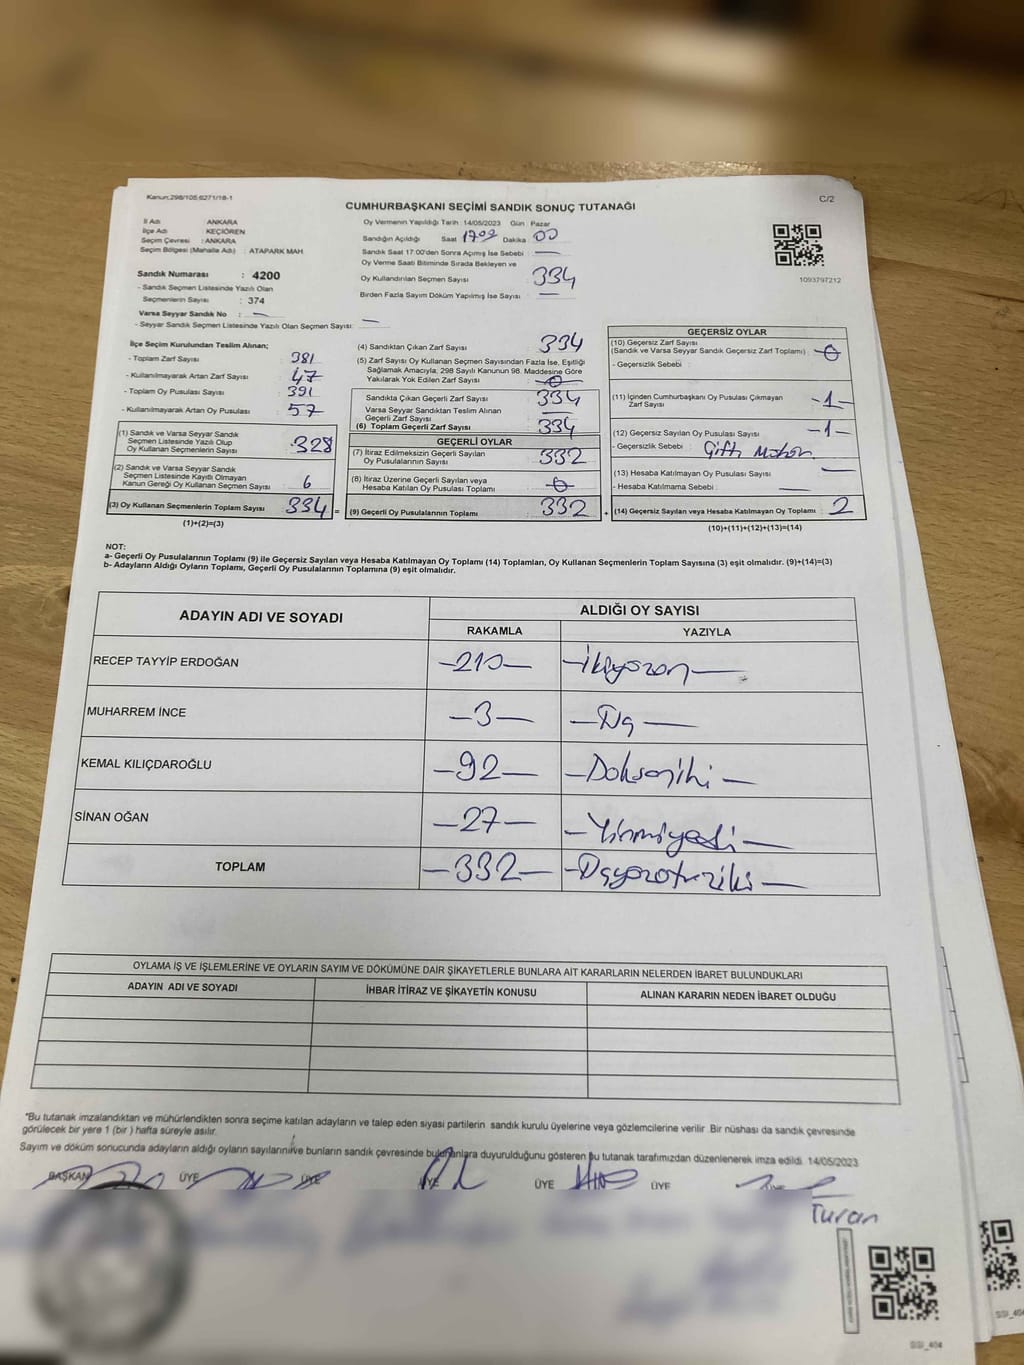 Kanun;298/105;6271/18-1
C/2
CUMHURBAŞKANI SEÇİMİ SANDIK SONUÇ TUTANAĞI
İl Adı : ANKARA
İlçe Adı : KEÇİÖREN
Seçim Çevresi : ANKARA
Seçim Bölgesi (Mahalle Adı) : ATAPARK MAH
Sandık Numarası : 4200
- Sandık Seçmen Listesinde Yazılı Olan
Seçmenlerin Sayısı : 374
Varsa Seyyar Sandık No : —
- Seyyar Sandık Seçmen Listesinde Yazılı Olan Seçmen Sayısı: —
Oy Vermenin Yapıldığı Tarih :14/05/2023 Gün : Pazar
Sandığın Açıldığı Saat 17:00 Dakika 00
Sandık Saat 17:00'den Sonra Açımış İse Sebebi : —
Oy Verme Saati Bitiminde Sırada Bekleyen ve
Oy Kullandırılan Seçmen Sayısı : 334
Birden Fazla Sayım Döküm Yapılmış İse Sayısı : —
1093797212
İlçe Seçim Kurulundan Teslim Alınan;
- Toplam Zarf Sayısı : 381
- Kullanılmayarak Artan Zarf Sayısı : 47
- Toplam Oy Pusulası Sayısı : 391
- Kullanılmayarak Artan Oy Pusulası : 57
(1) Sandık ve Varsa Seyyar Sandık
Seçmen Listesinde Yazılı Olup
Oy Kullanan Seçmenlerin Sayısı : 328
(2) Sandık ve Varsa Seyyar Sandık
Seçmen Listesinde Kayıtlı Olmayan
Kanun Gereği Oy Kullanan Seçmen Sayısı : 6
(3) Oy Kullanan Seçmenlerin Toplam Sayısı : 334 =
(1)+(2)=(3)
(4) Sandıktan Çıkan Zarf Sayısı : 334
(5) Zarf Sayısı Oy Kullanan Seçmen Sayısından Fazla İse, Eşitliği
Sağlamak Amacıyla, 298 Sayılı Kanunun 98. Maddesine Göre
Yakılarak Yok Edilen Zarf Sayısı : 0
Sandıkta Çıkan Geçerli Zarf Sayısı : 334
Varsa Seyyar Sandıktan Teslim Alınan
Geçerli Zarf Sayısı : —
(6) Toplam Geçerli Zarf Sayısı : 334
GEÇERLİ OYLAR
(7) İtiraz Edilmeksizin Geçerli Sayılan
Oy Pusulalarının Sayısı : 332
(8) İtiraz Üzerine Geçerli Sayılan veya
Hesaba Katılan Oy Pusulası Toplamı : 0
(9) Geçerli Oy Pusulalarının Toplamı : 332 +
GEÇERSİZ OYLAR
(10) Geçersiz Zarf Sayısı
(Sandık ve Varsa Seyyar Sandık Geçersiz Zarf Toplamı) : 0
- Geçersizlik Sebebi :
(11) İçinden Cumhurbaşkanı Oy Pusulası Çıkmayan
Zarf Sayısı : -1-
(12) Geçersiz Sayılan Oy Pusulası Sayısı : -1-
- Geçersizlik Sebebi : Çift Mühür
(13) Hesaba Katılmayan Oy Pusulası Sayısı : —
- Hesaba Katılmama Sebebi : —
(14) Geçersiz Sayılan veya Hesaba Katılmayan Oy Toplamı : 2
(10)+(11)+(12)+(13)=(14)
NOT:
a- Geçerli Oy Pusulalarının Toplamı (9) ile Geçersiz Sayılan veya Hesaba Katılmayan Oy Toplamı (14) Toplamları, Oy Kullanan Seçmenlerin Toplam Sayısına (3) eşit olmalıdır. (9)+(14)=(3)
b- Adayların Aldığı Oyların Toplamı, Geçerli Oy Pusulalarının Toplamına (9) eşit olmalıdır.
ADAYIN ADI VE SOYADI ALDIĞI OY SAYISI
RAKAMLA YAZIYLA
RECEP TAYYİP ERDOĞAN —210— —İkiyüzon—
MUHARREM İNCE —3— —Üç—
KEMAL KILIÇDAROĞLU —92— —Doksaniki—
SİNAN OĞAN —27— —Yirmiyedi—
TOPLAM —332— —Üçyüzotuziki—
OYLAMA İŞ VE İŞLEMLERİNE VE OYLARIN SAYIM VE DÖKÜMÜNE DAİR ŞİKAYETLERLE BUNLARA AİT KARARLARIN NELERDEN İBARET BULUNDUKLARI
ADAYIN ADI VE SOYADI İHBAR İTİRAZ VE ŞİKAYETİN KONUSU ALINAN KARARIN NEDEN İBARET OLDUĞU
*Bu tutanak imzalandıktan ve mühürlendikten sonra seçime katılan adayların ve talep eden siyasi partilerin sandık kurulu üyelerine veya gözlemcilerine verilir. Bir nüshası da sandık çevresinde
görülecek bir yere 1 (bir ) hafta süreyle asılır.
Sayım ve döküm sonucunda adayların aldığı oyların sayılarını ve bunların sandık çevresinde bulunanlara duyurulduğunu gösteren bu tutanak tarafımızdan düzenlenerek imza edildi. 14/05/2023
BAŞKAN ÜYE ÜYE ÜYE ÜYE ÜYE
Turan
SSI_404
SSI_404